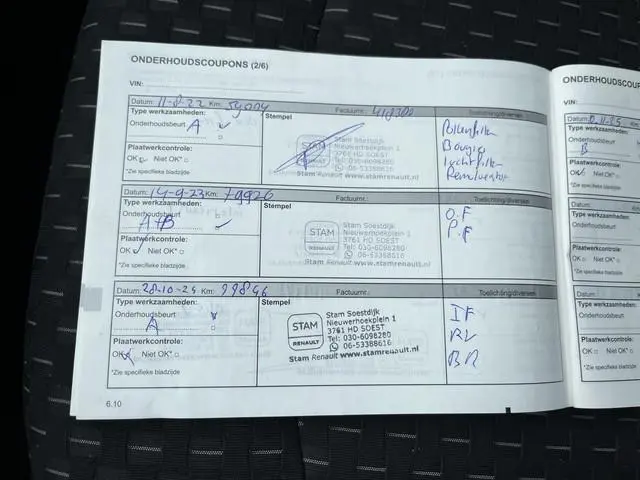 ONDERHOUDSCOUPONS (2/6)
VIN:
Datum: 11-8-22 Km: 59004 Factuurnr.: 418300 Toelichting/diversen
Type werkzaamheden: Stempel
Onderhoudsbeurt A
Plaatwerkcontrole:
OK Niet OK*
*Zie specifieke bladzijde
Stam Soestdijk
Nieuwerhoekplein 1
3761 HD SOEST
Tel: 030-6098280
06-53388616
Stam Renault www.stamrenault.nl
STAM
RENAULT
Pollenfilter
Bougies
Luchtfilter
Remvloeistof
Datum: 14-9-23 Km: 79926 Factuurnr.: Toelichting/diversen
Type werkzaamheden: Stempel
Onderhoudsbeurt
A+B
Plaatwerkcontrole:
OK Niet OK*
*Zie specifieke bladzijde
STAM
RENAULT
Stam Soestdijk
Nieuwerhoekplein 1
3761 HD SOEST
Tel: 030-6098280
06-53388616
Stam Renault www.stamrenault.nl
O.F
P.F
Datum: 28-10-24 Km: 99846 Factuurnr.: Toelichting/diversen
Type werkzaamheden: Stempel
Onderhoudsbeurt
A
Plaatwerkcontrole:
OK Niet OK*
*Zie specifieke bladzijde
STAM
RENAULT
Stam Soestdijk
Nieuwerhoekplein 1
3761 HD SOEST
Tel: 030-6098280
06-53388616
Stam Renault www.stamrenault.nl
IF
RV
6.10
ONDERHOUDSCOUP
VIN:
Datum:
Type werkzaamheden:
Onderhoudsbeurt
B
Plaatwerkcontrole:
OK Niet OK*
*Zie specifieke bladzijde
Datum:
Type werkzaamheden:
Onderhoudsbeurt
Plaatwerkcontrole:
OK Niet OK*
*Zie specifieke bladzijde
Datum:
Type werkzaamheden:
Onderhoudsbeurt
Plaatwerkcontrole:
OK Niet OK*
*Zie specifieke bladzijde